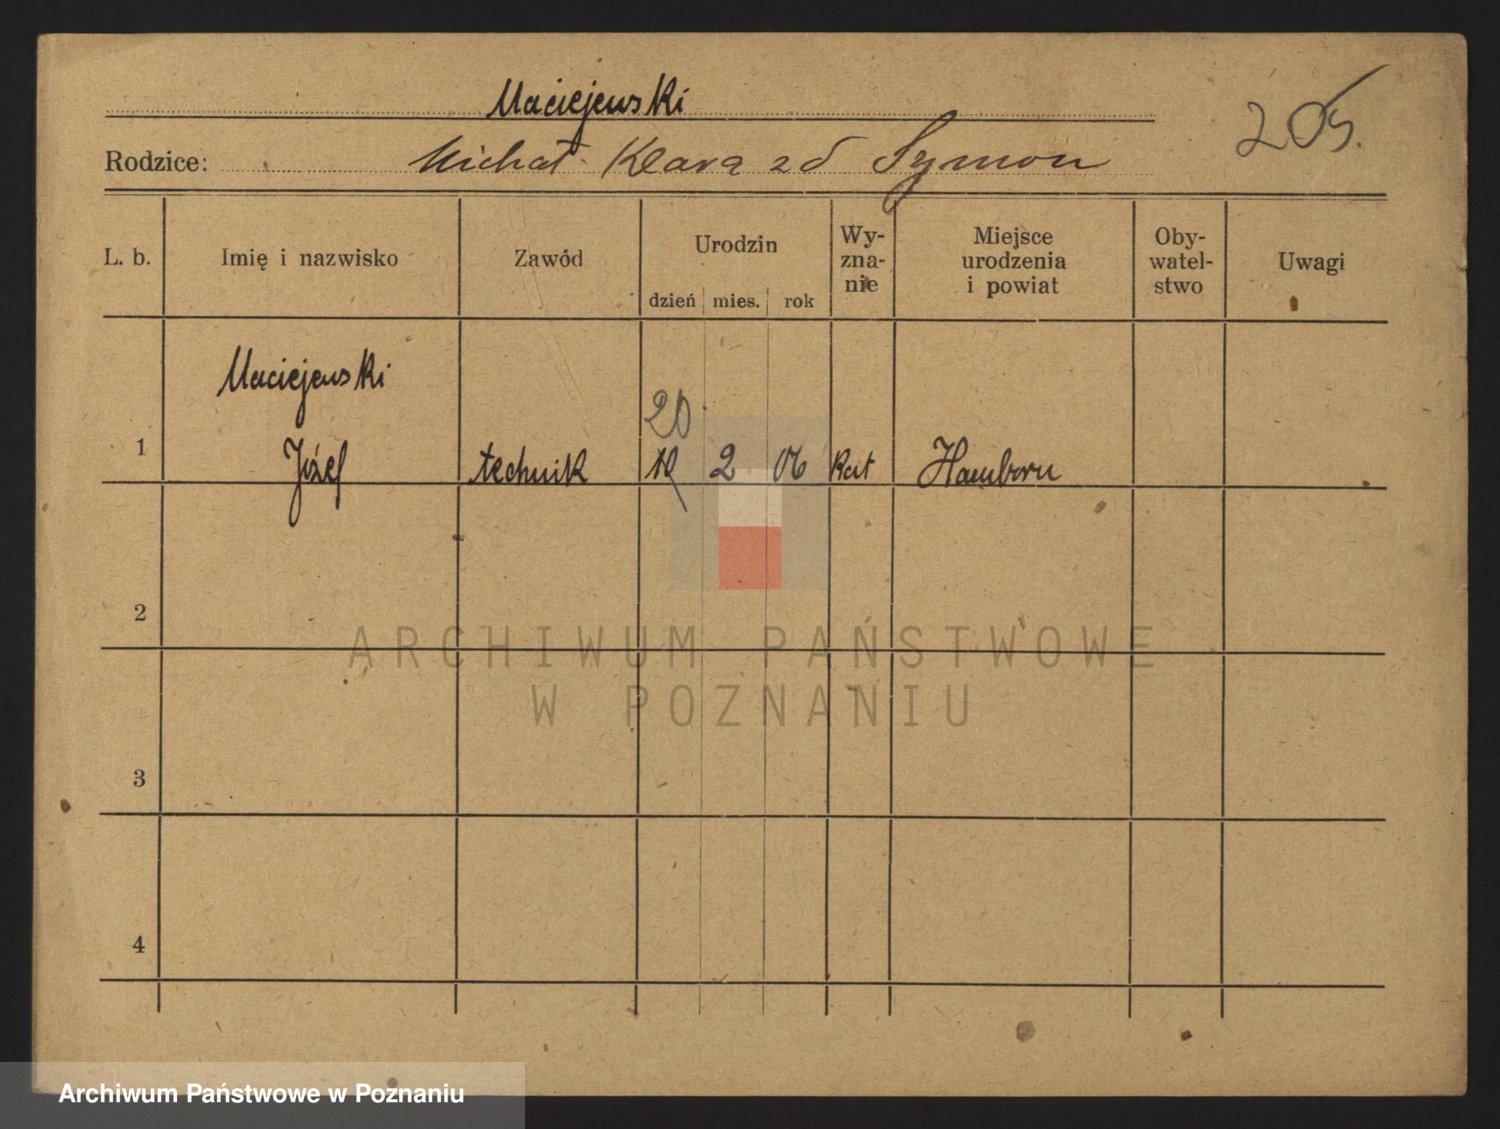 Maciejewski
205.
Rodzice: Michał Klara zd Szymon
L. b. Imię i nazwisko Zawód Urodzin dzień mies. rok Wy-zna-nie Miejsce urodzenia i powiat Oby-watel-stwo Uwagi
Maciejewski
20
1 Józef technik 2 06 kat Hamborn
2
ARCHIWUM PAŃSTWOWE
W POZNANIU
3
4
Archiwum Państwowe w Poznaniu